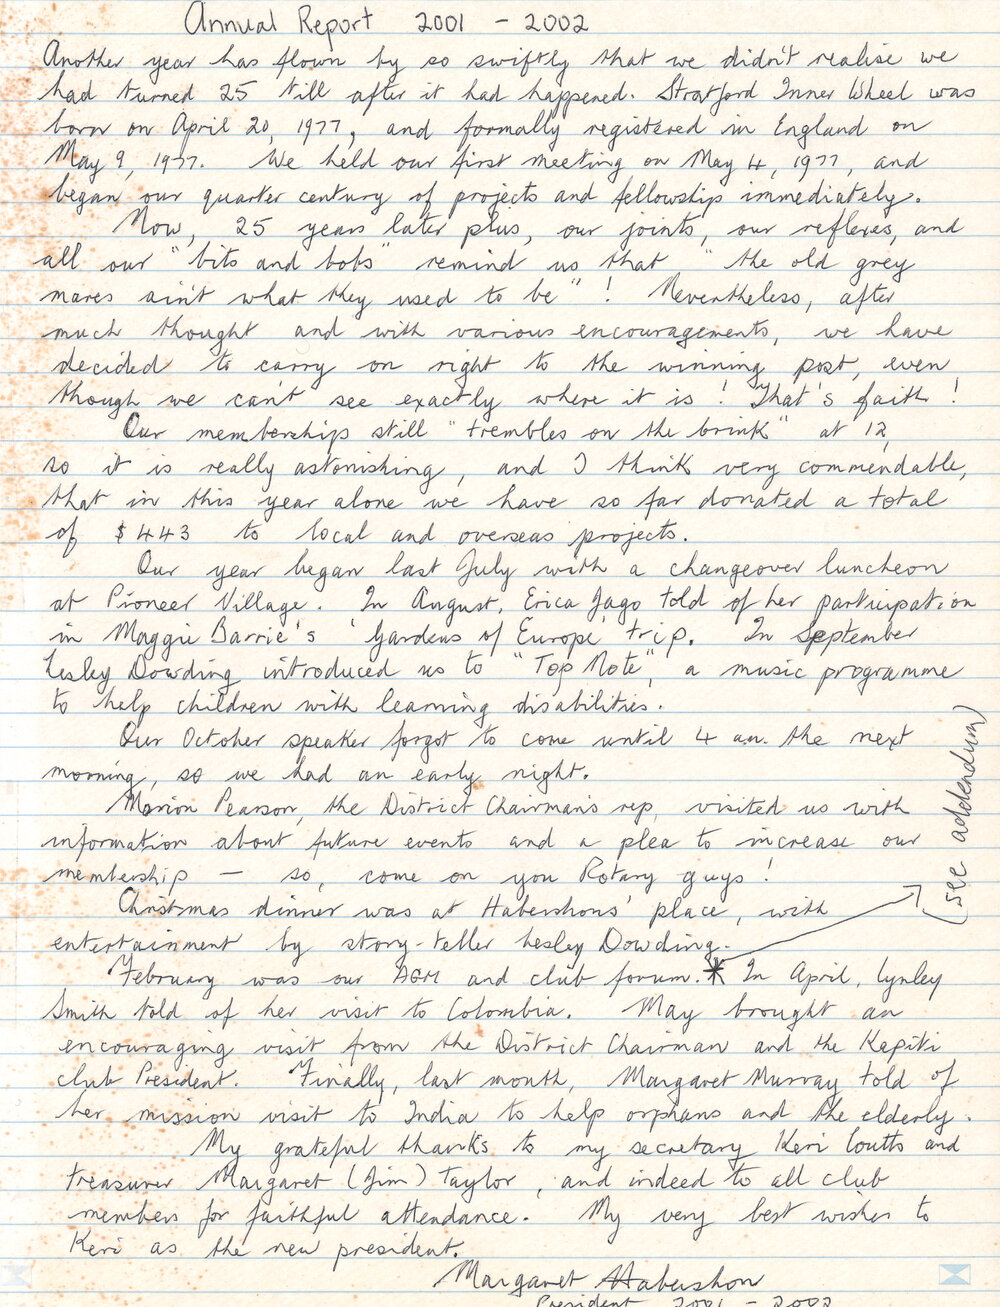 Annual Report 2001 - 2002
Another year has flown by so swiftly that we didn't realise we
had turned 25 till after it had happened. Stratford Inner Wheel was
born on April 20, 1977, and formally registered in England on
May 9, 1977. We held our first meeting on May 4, 1977, and
began our quarter century of projects and fellowship immediately.
Now, 25 years later plus, our joints, our reflexes, and
all our "bits and bobs" remind us that "the old grey
mares ain't what they used to be"! Nevertheless, after
much thought and with various encouragements, we have
decided to carry on right to the winning post, even
though we can't see exactly where it is! That's faith!
Our membership still "trembles on the brink" at 12,
so it is really astonishing, and I think very commendable,
that in this year alone we have so far donated a total
of $443 to local and overseas projects.
Our year began last July with a changeover luncheon
at Pioneer Village. In August, Erica Jago told of her participation
in Maggie Barrie's 'Gardens of Europe' trip. In September
Lesley Dowding introduced us to "Top Note", a music programme
to help children with learning disabilities.
Our October speaker forgot to come until 4 a.m. the next
morning, so we had an early night.
Marion Pearson, the District Chairman's rep, visited us with
information about future events and a plea to increase our
membership — so, come on you Rotary guys!
Christmas dinner was at Habershons' place, with
entertainment by story-teller Lesley Dowding.
(see addendum)
February was our AGM and club forum.* In April, Lynley
Smith told of her visit to Colombia. May brought an
encouraging visit from the District Chairman and the Kapiti
club President. Finally, last month, Margaret Murray told of
her mission visit to India to help orphans and the elderly.
My grateful thanks to my secretary Keri Coutts and
treasurer Margaret (Jim) Taylor, and indeed to all club
members for faithful attendance. My very best wishes to
Keri as the new president.
Margaret Habershon
President 2001 - 2002